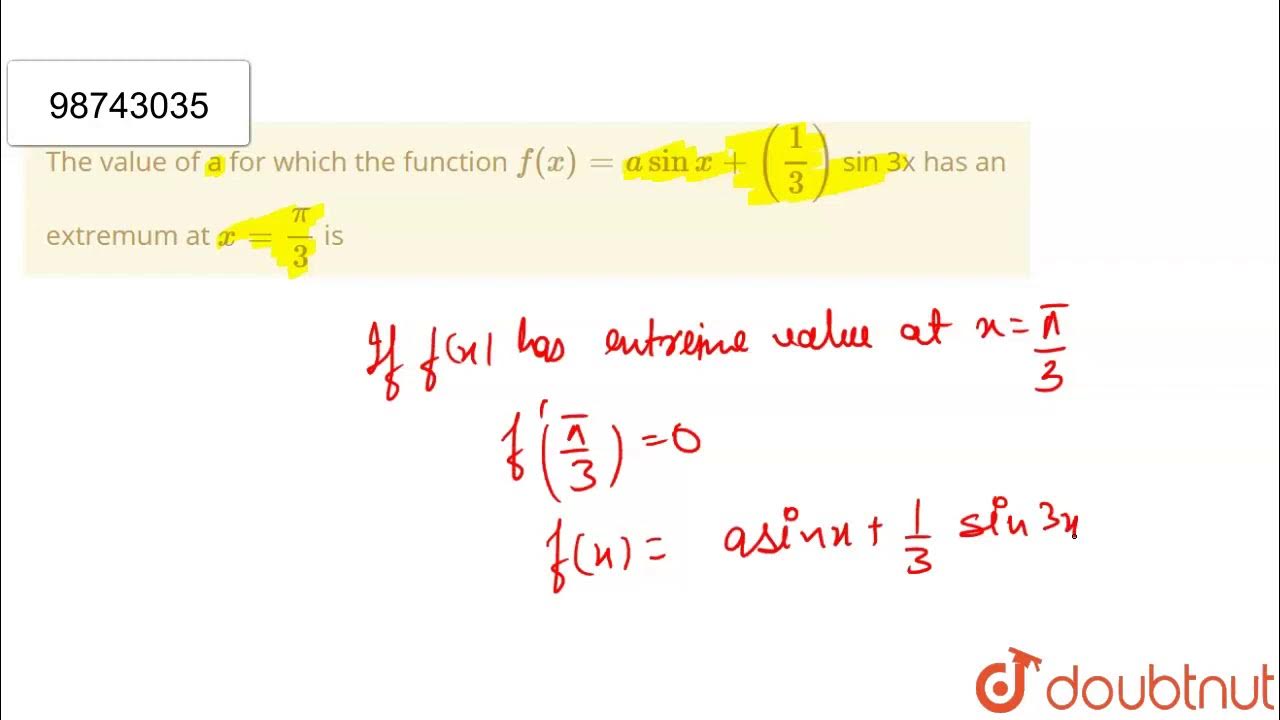 98743035
The value of a for which the function f(x) = a sin x + (1/3) sin 3x has an
extremum at x = π/3 is
If f(x) has extreme value at x = π/3
f'(π/3) = 0
f(x) = a sin x + 1/3 sin 3x
doubtnut